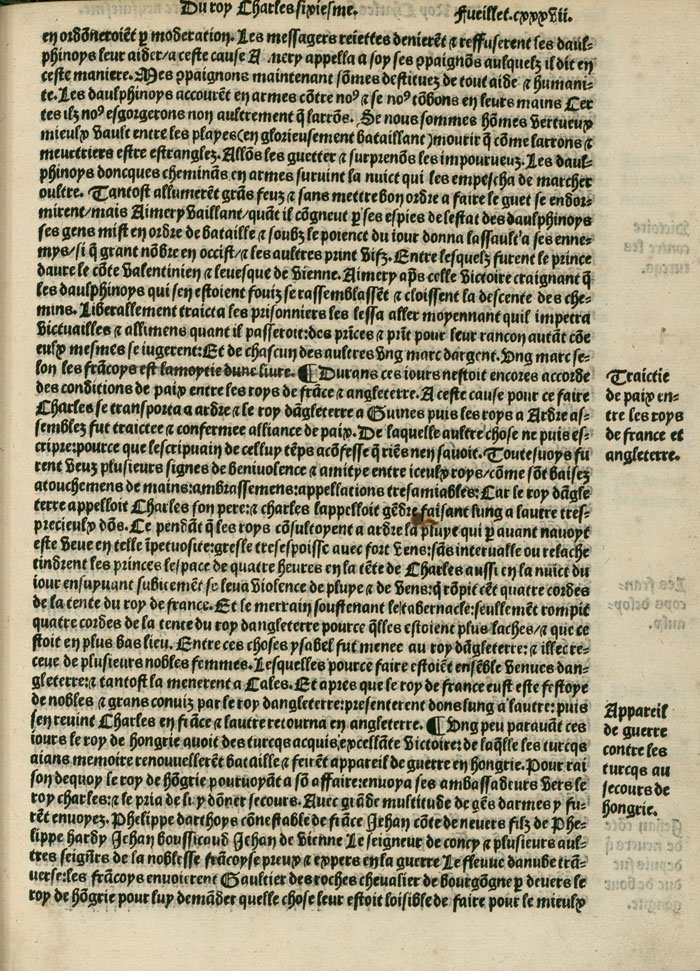 Du roy Charles sixiesme.
Fueillet.cxxxvii.
en ordōneroiēt ꝑ moderation. Les messagers reiettes denierēt ⁊ reffuserent les daul-
phinoys leur aider/a ceste cause A mery appella a soy ses ꝯpaignōs ausquelz il dit en
ceste maniere. Mes ꝯpaignons maintenant sōmes destituez de tout aide ⁊ humani-
te. Les daulphinoys accourēt en armes cōtre noꝰ ⁊ se noꝰ tōbons en leurs mains Cer
tes ilz noꝰ esgorgerons non aultrement q̄ larrōs. Se nous sommes hōmes vertueux
mieulx vault entre les playes(en glorieusement bataillant)mourir q̄ cōme larrons ⁊
meurtriers estre estranglez. Allōs les guetter ⁊ surprenōs les impourueuz. Les daul-
phinoys doncques cheminās en armes suruint la nuict qui les empescha de marcher
oultre. Tantost allumerēt grās feuz ⁊ sans mettre bon ordre a faire le guet se endor-
mirent/mais Aimery vaillant/quāt il cōgneut ꝑ ses espies de lestat des daulphinoys
ses gens mist en ordre de bataille ⁊ soubz le potence du iour donna lassault'a ses enne-
mys/si q̄ grant nōbre en occist/⁊ les aultres print vifz. Entre lesquelz furent le prince
daure le cōte valentinien ⁊ leuesque de vienne. Aimery apꝭ celle victoire craignant q̄
les daulphinoys qui sen estoient fouiz se rassemblassēt ⁊ cloissent la descente des che-
mins. Liberallement traicta les prisonniers les lessa aller moyennant quil impetra
victuailles ⁊ allimens quant il passeroit:des prīces ⁊ prīt pour leur rancon autāt cōe
eulx mesmes se iugerent:Et de chascun des aultres vng marc dargent. vng marc se-
lon les frācoys est lamoytie dune liure. ¶ Durans ces iours nestoit encores accorde
des conditions de paix entre les roys de frāce ⁊ angleterre. A ceste cause pour ce faire
Charles se transporta a ardre ⁊ le roy dāgleterre a Guines puis les roys a Ardre as-
semblez fut traictee ⁊ confermee alliance de paix. De laquelle aultre chose ne puis es-
cripre:pource que lescripuain de celluy tēps acōfesse q̄ riēs nen sauoit. Toutesuoys fu
rent veuz plusieurs signes de beniuolence ⁊ amitye entre iceulx roys/cōme sōt baisez
atouchemens de mains:ambrassemens:appellations tresamiables: Car le roy dāgle
terre appelloit Charles son pere:⁊ charles lappelloit gēdre faisant lung a lautre tres-
precieulx dōs. Ce pendāt q̄ les roys cōsultoyent a ardre la pluye qui ꝑ auant nauoyt
este veue en telle īpetuosite:gresle tresespoisse auec fort vens:sās interualle ou relache
tindrent les princes lespace de quatre heures en la tēte de Charles aussi en la nuict du
iour ensuyuant subitemēt se leua violence de pluye ⁊ de vens:q̄ rōpit cēt quatre cordes
de la tente du roy de france. Et le merrain soustenant le tabernacle:seullemēt rompit
quatre cordes de la tente du roy dangleterre pource q̄lles estoient plus laches/⁊ que ce
stoit en plus bas lieu. Entre ces choses ysabel fut menee au roy dāgleterre:⁊ illec re-
ceue de plusieurs nobles femmes. Lesquelles pource faire estoiēt ensēble venues dan-
gleterre:⁊ tantost la menerent a Cales. Et apres que le roy de france eust este festoye
de nobles ⁊ grans conuiz par le roy dangleterre:presenterent dons lung a lautre:puis
sen reuint Charles en frāce ⁊ lautre retourna en angleterre. ¶ vng peu parauāt ces
iours le roy de hongrie quoit des turcqs acquis excellāte victoire: de laq̄lle les turcqs
aians memoire renouuellerēt bataille ⁊ feirēt appareil de guerre en hongrie. Pour rai
son dequoy le roy de hōgrie pouruoyāt a sō affaire:enuoya ses ambassadeurs vers le
roy charles:⁊ le pria de luy dōner secours. Auec grāde multitude de gēs darmes y fu-
rēt enuoyez. Phelippe darthoys cōnestable de frāce Jehan cōte de neuers filz de Phe-
lippe hardy Jehan boussicaud Jehan de vienne Le seigneur de concy ⁊ plusieurs aul-
tres seignr̄s de la noblesse frācoyse preux ⁊ expers en la guerre Le fleuue danube trā-
uerse:les frācoys enuoierent Gaultier des roches cheualier de bourgōgne ꝑ deuers le
roy de hōgrie pour luy demāder quelle chose leur estoit loisible de faire pour le mieulx
Traictie
de paix en-
tre les roys
de france et
angleterre.
Appareil
de guerre
contre les
turcqs au
secours de
hongrie.